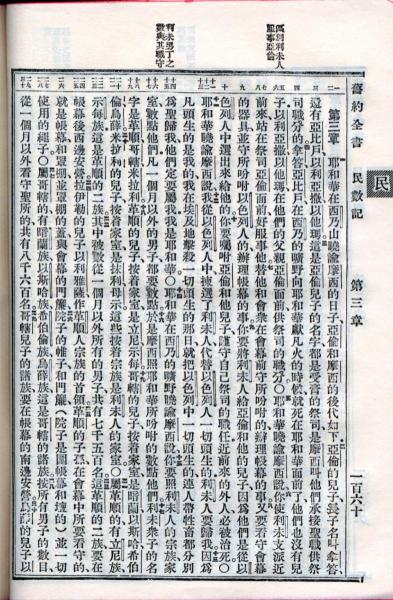 舊約全書 民數記 第三章 二百六十
民
區別利未人
服事亞倫
利未男丁之
數與其職守
第三章 耶和華在西乃山曉諭摩西的日子亞倫和摩西的後代如下亞倫的兒子長子名叫拿答
還有亞比戶以利亞撒以他瑪這是亞倫兒子的名字都是受膏的祭司是摩西叫他們承接聖職供祭
司職分的拿答亞比戶在西乃的曠野向耶和華獻凡火的時候就死在耶和華面前了他們也沒有兒
子以利亞撒以他瑪在他們的父親亞倫面前供祭司的職分○耶和華曉諭摩西說你使利未支派近
前來站在祭司亞倫面前好服事他替他和會衆在會幕前守所吩咐的辦理帳幕的事又要看守會幕
的器具並守所吩咐以色列人的辦理帳幕的事你要將利未人給亞倫和他的兒子因爲他們是從以
色列人中選出來給他的你要囑咐亞倫和他兒子謹守自己祭司的職任近前來的外人必被治死○
耶和華曉諭摩西說我在以色列人中揀選了利未人代替以色列人一切頭生的利未人要歸我因爲
凡頭生的是我的我在埃及地擊殺一切頭生的那日就把以色列中一切頭生的連人帶牲畜都分別
爲聖歸我他們定要屬我我是耶和華○耶和華在西乃的曠野曉諭摩西說你要照利未人的宗族家
室數點他們凡一個月以外的男子都要數點於是摩西照耶和華所吩咐的數點他們利未衆子的名
字是革順哥轄米拉利革順的兒子按着家室是立尼示每哥轄的兒子按着家室是暗蘭以斯哈希伯
倫烏薛米拉利的兒子按着家室是抹利母示這些按着宗族是利未人的家室○屬革順的有立尼族
示每族這是革順的二族其中被數從一個月以外所有的男子共有七千五百名這革順的二族要在
帳幕後西邊安營拉伊勒的兒子以利雅薩作革順人宗族的首領革順的子孫在會幕中所要看守的
就是帳幕和罩棚並罩棚的蓋與會幕的門簾院子的帷子和門簾(院子是圍帳幕和壇的)並一切
使用的繩子○屬哥轄的有暗蘭族以斯哈族希伯倫族烏薛族這是哥轄的諸族按所有男子的數目
從一個月以外看守聖所的共有八千六百名哥轄兒子的諸族要在帳幕的南邊安營烏薛的兒子以